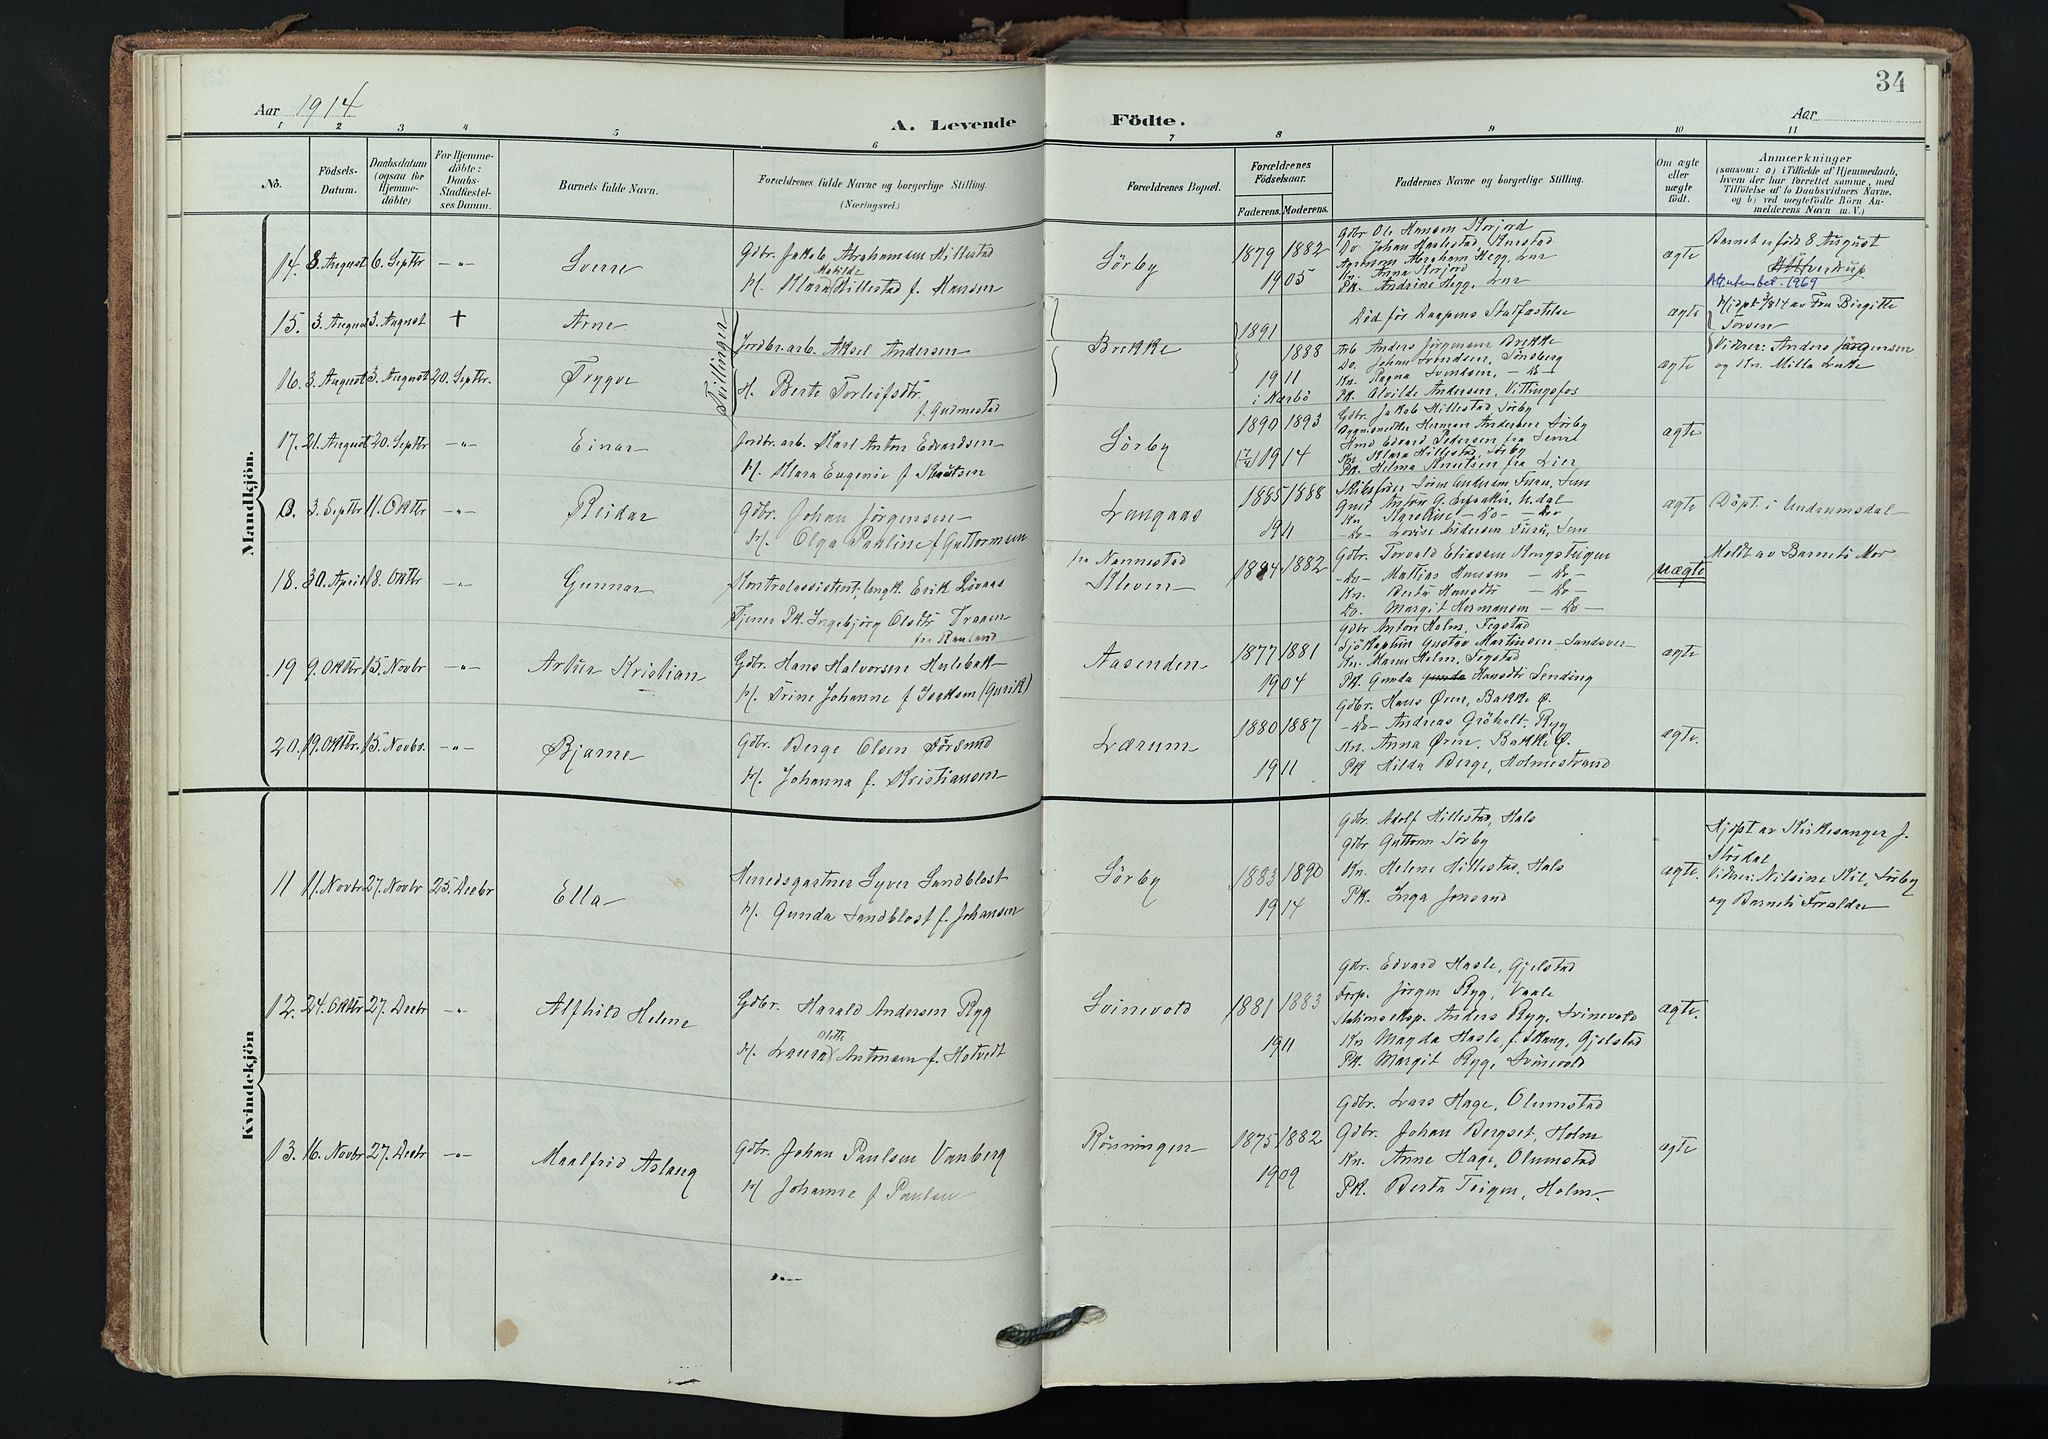 34
Aar 1914
A. Levende
Födte.
Aar
1 2 3 4 5 6 7 8 9 10 11
No.
Födsels-
Datum.
Daabsdatum
(ogsaa for
Hjemme-
döbte)
For Hjemme-
döbte:
Daabs-
Stadfæstel-
ses Datum.
Barnets fulde Navn.
Forældrenes fulde Navne og borgerlige Stilling.
(Næringsvei.)
Forældrenes Bopæl.
Forældrenes
Födselsaar.
Faderens. Moderens.
Faddernes Navne og borgerlige Stilling.
Om ægte
eller
uægte
födt.
Anmærkninger
(saasom: a) i Tilfælde af Hjemmedaab,
hvem der har forrettet samme, med
Tilföielse af to Daabsvidners Navne.
og b) ved uægtefödte Börn An-
melderens Navn m. V.)
Mandkjön.
14. 8. August 6. Septbr -"- Sverre
Gdbr. Jakob Abrahamsen Hillestad
Matilde
H. Klara Hillestad f. Hansen
Sörby
1879 1882
1905
Gdbr Ole Hansen Korjord
Do Johan Haslestad, Knestad
Abraham Hegg, Lur
Kn. Anna Korjord
Pk. Andrine Hegg, Lur
ægte
Barnet er född 8 August
1969
15. 3. August 3. August + Arne
Tvillinger
Jordbr.arb. Aksel Andersen
Brekke
1891
Död för Daapens Stadfæstelse
ægte
Hjdpt 3/8 14 av Fru Birgitte
Torsen
16. 3. August 3. August 20. Septbr. Trygve
H. Berte Torleifsdtr.
f. Gudmestad
1888
1911
i Kærbö
Arb Anders Jörgensen Brekke
Do. Johan Svendsen, Tönsberg
Kn. Ragna Svendsen, -Do-
Pk. Alvilde Andersen, Vittingsfos
ægte
Vidner: Anders Jörgensen
og Kn. Milla Lakke
17. 21. August 20. Septbr -"- Einar
Jordbr. arb. Karl Anton Edvardsen
H. Klara Eugenie f. Knutsen
Sörby
1890 1893
1914
Gdbr. Jakob Hillestad, Sörby
Bygn.snedker Herman Andersen Sörby
Smd Edvard Pedersen fra Sem
Kn. Klara Hillestad, Sörby
Pk. Helma Knutsen fra Lier
ægte
0. 3. Septbr 11. Oktbr -"- Reidar
Gdbr. Johan Jörgensen
H. Olga Pauline f Guttormsen
Langaas
1885 1888
1911
Kn Karoline -Do- -Do-
-Do- Lovise Andersen Furu, Sem
ægte
(Döpt. i Undrumsdal-
18. 30. April 18. Oktbr -"- Gunnar
Kontrolassistent, ungk. Erik Lövaas
Tjener Pk. Ingebjörg Olsdtr Traaen
fra Rauland
fra Nannestad
Kleven
1884 1882
Gdbr. Torvald Eliassen Kongsteigen
-Do- Mattias Hansen -Do-
Kn. Berta Hansdtr -Do-
Do. Margit Hermansen -Do-
uægte
Meldt av Barnets Mor
19 9. Oktbr 15. Novbr -"- Artur Kristian
Gdbr. Hans Halvorsen Hulebak
H. Trine Johanne f Isaksen (Gurik)
Aasenden
1877 1881
1904
Gdbr Anton Holm, Fegstad
Sjökaptein Gustav Martinsen Sandsver
Kn. Maren Holm, Fegstad
Pk. Gunda Hansdtr Sending
ægte
20. 19. Oktbr. 15. Novbr. -"- Bjarne
Gdbr. Berge Olsen Försund
H. Johanna f. Kristiansen
Lærum
1880 1887
1911
Gdbr. Hans Øren, Bakke Ø.
-Do- Andreas Gröholt, Ryg
Kn. Anna Øren, Bakke Ø.
Pk Hilda Berge, Holmestrand
ægte.
Kvindekjön
11 11. Novbr 27. Novbr 25. Decbr Ella
Herredsgartner Syver Sandblost
H. Gunda Sandblost f. Johansen
Sörby
1883 1890
1914
Gdbr. Adolf Hillestad, Hals
Gdbr Guttorm Sörby
Kn. Helene Hillestad, Hals
Pk. Inga Jonsrud
ægte.
Hjdpt av Kirkesanger J.
Stirdal
Vidner: Nilsine Kil, Sörby
og Barnets Foræeldre
12. 24. Oktbr 27. Decbr -"- Alfhild Helene
Gdbr. Harald Andersen Ryg
Olette
H. Laura Antonsen f. Hotvedt
Svinevold
1881 1883
1911
Gdbr. Edvard Hasle, Gjelstad
Forp. Jörgen Ryg, Vaale
Stationseksp. Anders Ryg, Svinevold
Kn Magda Hasle, f. Skaug, Gjelstad
Pk. Margit Ryg, Svinevold
ægte.
13. 16. Novbr 27. Decbr -"- Maalfrid Aslaug
Gdbr. Johan Paulsen Vanberg
H Johanne f Paulsen
Rönningen
1875 1882
1909
Gdbr. Lars Hage, Olumstad
Gdbr. Johan Bergset, Holm
Kn. Anne Hage, Olumstad
Pk. Berta Teigen, Holm.
ægte